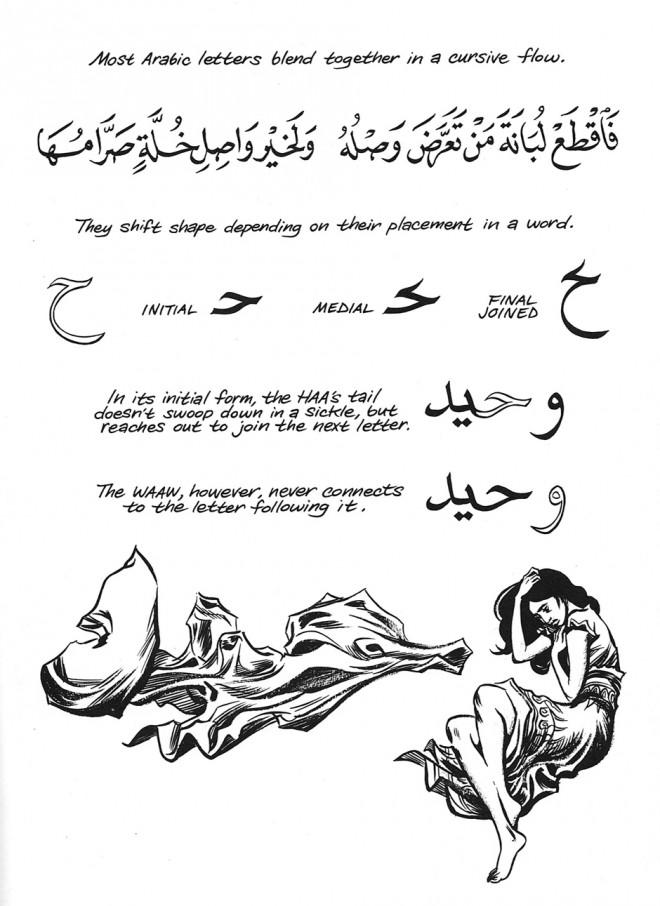 Most Arabic letters blend together in a cursive flow.
فَاقْطَعْ لُبَانَةَ مَنْ تَعَرَّضَ وَصْلُهُ وَلَخَيْرُ وَاصِلِ خُلَّةٍ صَرَّامُهَا
They shift shape depending on their placement in a word.
ح INITIAL حـ MEDIAL ـحـ FINAL JOINED ـح
In its initial form, the HAA's tail
doesn't swoop down in a sickle, but
reaches out to join the next letter.
وحيد
The WAAW, however, never connects
to the letter following it.
وحيد